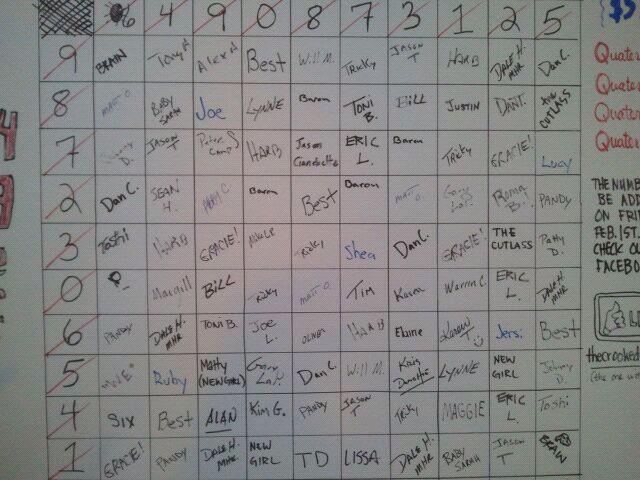 6 4 9 0 8 7 3 1 2 5
9 BRAIN Tony D Alex D Best Will M. Tricky JASON T HARB DALE H. MHR Dan C.
8 Matt O BABY SARAH Joe LYNNE Baron TONI B. BILL JUSTIN DAN T. the CUTLASS
7 JASON T HARB Jason ERIC L. Baron Tricky GRACIE! Lucy
2 Dan C. SEAN H. Baron Best Baron Matt O. Gary La!! PANDY
3 Toshi HARB GRACIE! Tricky Shea Dan C. GRACIE! THE CUTLASS Patty D.
0 Macgill BILL Tricky Matt O TIM Karen Warren C. ERIC L. DALE H. MHR
6 PANDY DALE H. MHR TONI B. JOE L. OLIVER HARB Elaine Jersi Best
5 Ruby Matty (NEW GIRL) Gary La!! Dan C. Will M. Kris LYNNE NEW GIRL Johnny D.
4 SIX Best ALAN Kim G. PANDY JASON T Tricky MAGGIE ERIC L. Toshi
1 GRACIE! PANDY DALE H. MHR NEW GIRL TD LISSA DALE H. MHR BABY SARAH JASON T BRAIN
$5
Quater
Quater
Quater
Quater
THE NUMB
BE ADD
ON FRI
FEB. 1ST.
CHECK OU
FACEBOO
LI
thecrooked
(the one wit